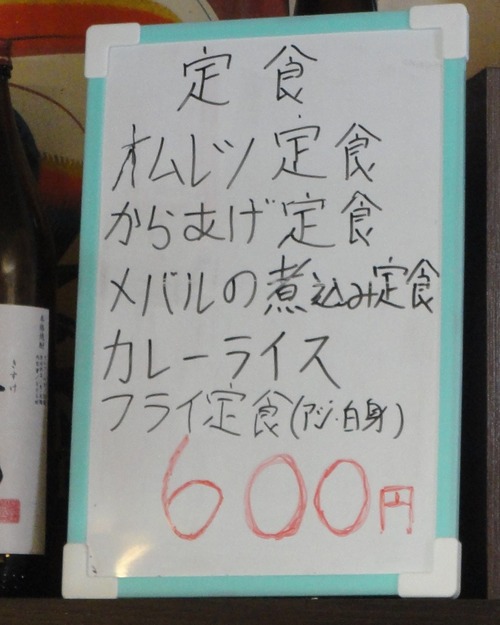 定食
オムレツ定食
からあげ定食
メバルの煮込み定食
カレーライス
フライ定食(アジ・白身)
600円
きすけ